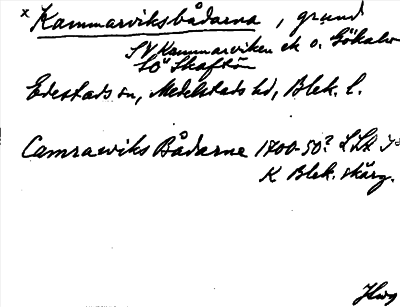 x Kammarviksbådarna, grund
SV Kammarviken ek o. Gökalv
SO Skaftön
Edestads sn, Medelstads hd, Blek. l.
Camrawiks Bådarne 1700-50? LSA
K Blek. skärg.